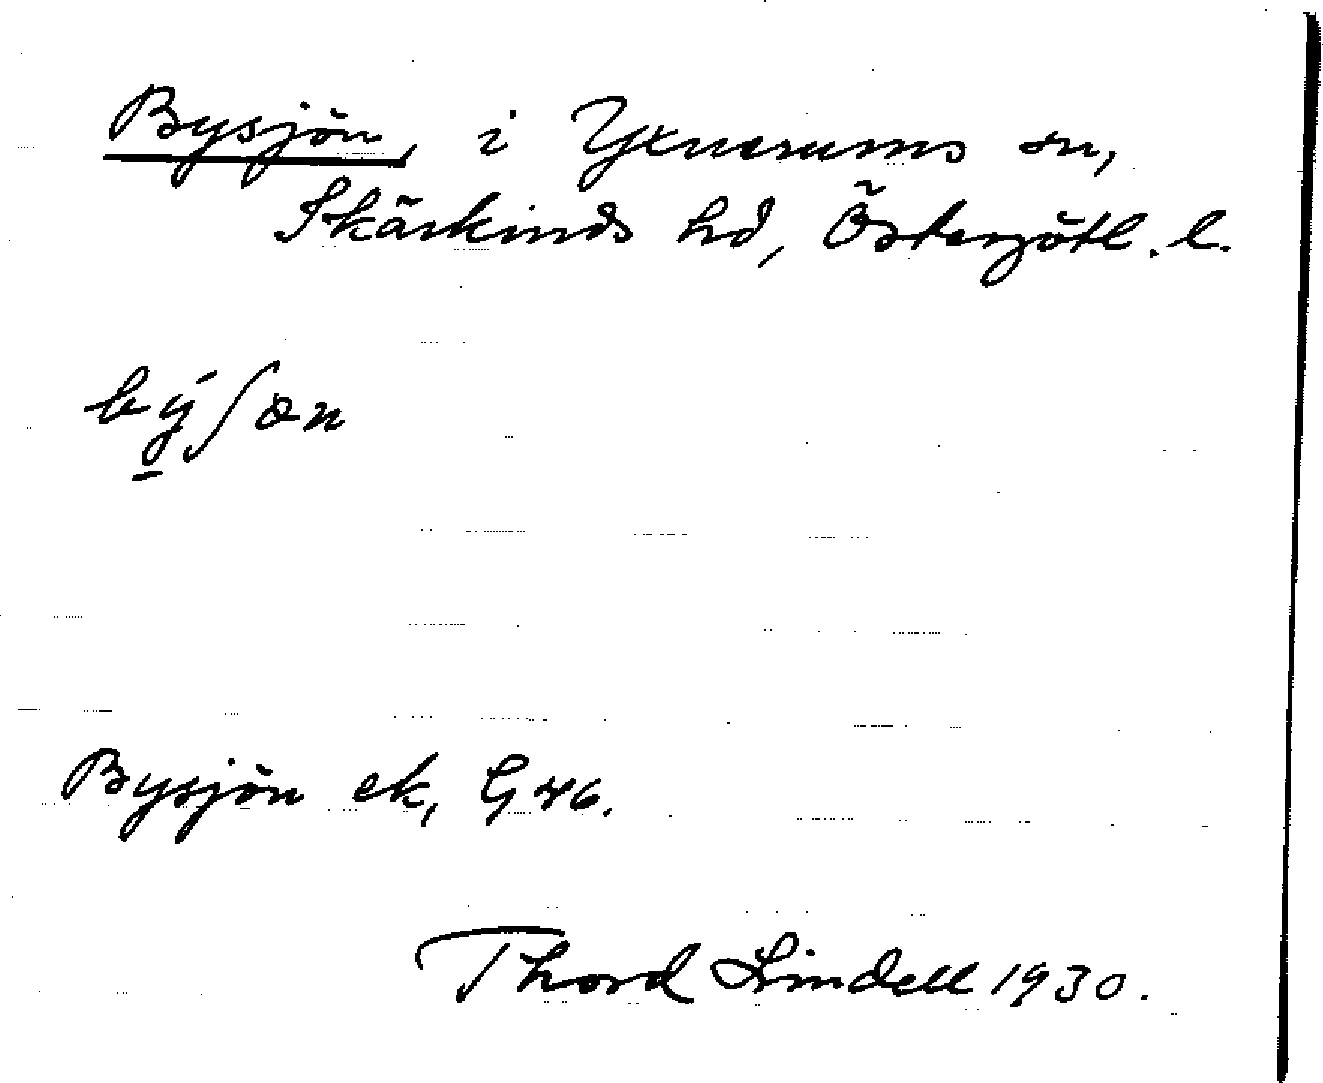 Bysjön, i Yxnerums sn,
Skärkinds hd, Östergötl. l.
bý̱ʃon
Bysjön ek, G 46.
Thord Lindell 1930.